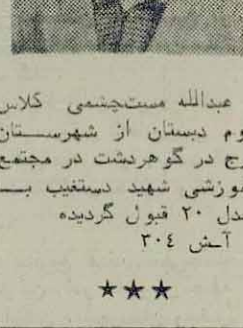 عبدالله مستجشمی کلاس
وم دبستان از شهرستان
رج در گوهردشت در مجتمع
وزشی شهید دستغیب بـ
دل ۲۰ قبول گردیده
آـش ۳۰٤
★★★